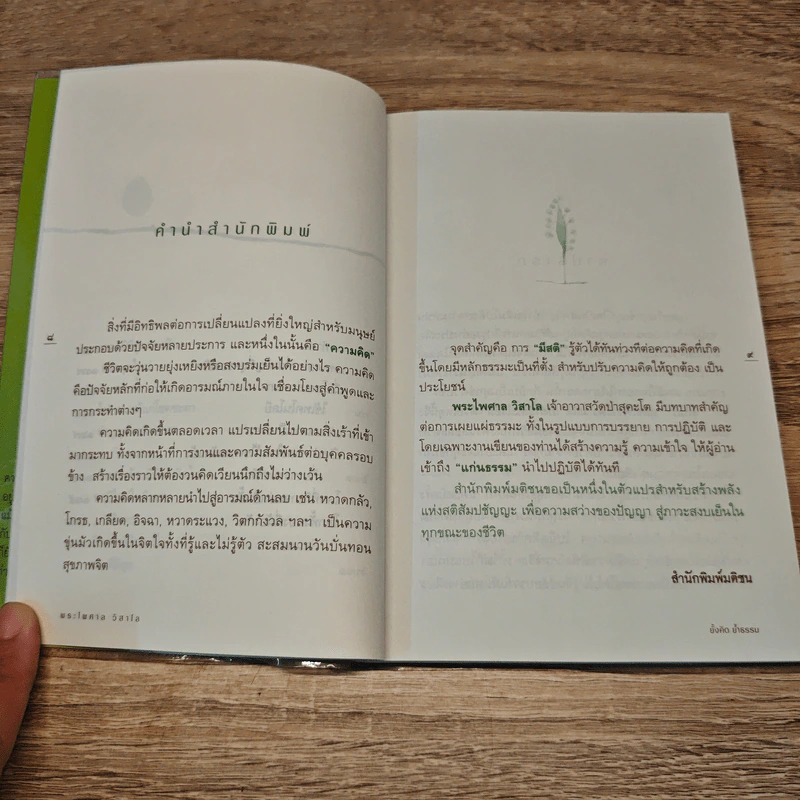 คำนำสำนักพิมพ์
๘
สิ่งที่มีอิทธิพลต่อการเปลี่ยนแปลงที่ยิ่งใหญ่สำหรับมนุษย์
ประกอบด้วยปัจจัยหลายประการ และหนึ่งในนั้นคือ "ความคิด"
ชีวิตจะวุ่นวายยุ่งเหยิงหรือสงบร่มเย็นได้อย่างไร ความคิด
คือปัจจัยหลักที่ก่อให้เกิดอารมณ์ภายในใจ เชื่อมโยงสู่คำพูดและ
การกระทำต่างๆ
ความคิดเกิดขึ้นตลอดเวลา แปรเปลี่ยนไปตามสิ่งเร้าที่เข้า
มากระทบ ทั้งจากหน้าที่การงานและความสัมพันธ์ต่อบุคคลรอบ
ข้าง สร้างเรื่องราวให้ต้องวนคิดเวียนนึกถึงไม่ว่างเว้น
ความคิดหลากหลายนำไปสู่อารมณ์ด้านลบ เช่น หวาดกลัว,
โกรธ, เกลียด, อิจฉา, หวาดระแวง, วิตกกังวล ฯลฯ เป็นความ
ขุ่นมัวเกิดขึ้นในจิตใจทั้งที่รู้และไม่รู้ตัว สะสมนานวันบั่นทอน
สุขภาพจิต
พระไพศาล วิสาโล
จุดสำคัญคือ การ "มีสติ" รู้ตัวได้ทันท่วงทีต่อความคิดที่เกิด
ขึ้นโดยมีหลักธรรมะเป็นที่ตั้ง สำหรับปรับความคิดให้ถูกต้อง เป็น
ประโยชน์
๙
พระไพศาล วิสาโล เจ้าอาวาสวัดป่าสุคะโต มีบทบาทสำคัญ
ต่อการเผยแผ่ธรรมะ ทั้งในรูปแบบการบรรยาย การปฏิบัติ และ
โดยเฉพาะงานเขียนของท่านได้สร้างความรู้ ความเข้าใจ ให้ผู้อ่าน
เข้าถึง "แก่นธรรม" นำไปปฏิบัติได้ทันที
สำนักพิมพ์มติชนขอเป็นหนึ่งในตัวแปรสำหรับสร้างพลัง
แห่งสติสัมปชัญญะ เพื่อความสว่างของปัญญา สู่ภาวะสงบเย็นใน
ทุกขณะของชีวิต
สำนักพิมพ์มติชน
ยั้งคิด ย้ำธรรม